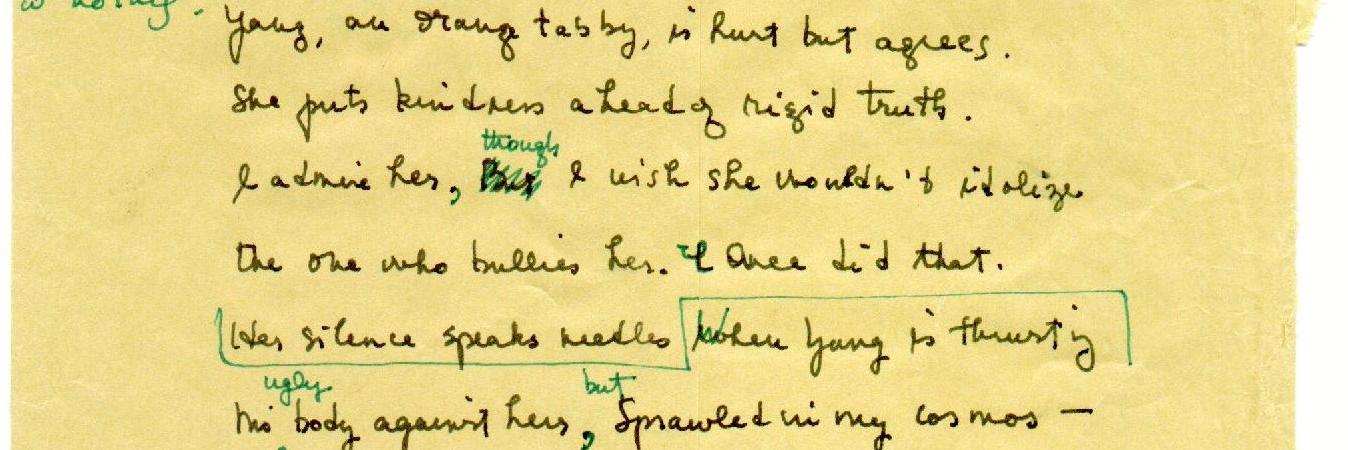 Yang, an orange tabby, is hurt but agrees.
She puts kindness ahead of rigid truth.
though
I admire her, But I wish she wouldn't idolize
the one who bullies her. I Once did that.
Her silence speaks needles when Yang is thrusting
ugly but
his body against hers, Sprawled in my cosmos —